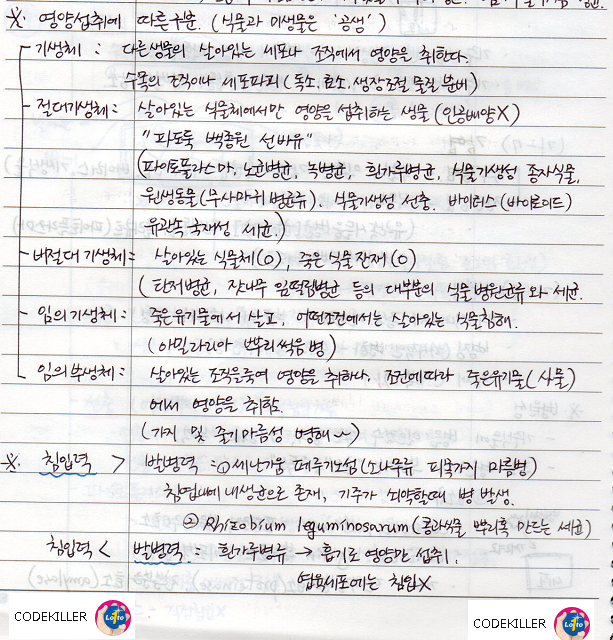 ※. 영양섭취에 따른구분. (식물과 미생물은 '공생')
기생체 : 다른생물의 살아있는 세포나 조직에서 영양을 취한다.
수목의 조직이나 세포파괴 (독소, 효소, 생장조절 물질 분비)
절대기생체 : 살아있는 식물체에서만 영양을 섭취하는 생물 (인공배양X)
"파포녹 백종원 선바유"
(파이토플라스마, 노균병균, 녹병균, 흰가루병균, 식물기생성 종자식물,
원생동물(무사마귀 병균류), 식물기생성 선충, 바이러스 (바이로이드)
유관속 국재성 세균)
비절대 기생체 : 살아있는 식물체(O), 죽은 식물 잔재(O)
(탄저병균, 잣나무 잎떨림병균 등의 대부분의 식물 병원균류와 세균.
임의 기생체 : 죽은유기물에서 살고, 어떤조건에서는 살아있는 식물침해.
(아밀라리아 뿌리썩음병)
임의부생체 : 살아있는 조직을죽여 영양을 취하나, 조건에따라 죽은유기물(사물)
에서 영양을 취함.
(가지 및 줄기마름성 병해
※. 침입력 > 발병력 = ① 세나기움 페루기노섬 (소나무류 피목가지 마름병)
침엽내에 내생균으로 존재, 기주가 쇠약할때 병 발생.
② Rhizobium leguminosarum (콩과식물 뿌리혹 만드는 세균)
침입력 < 발병력 = 흰가루병류 → 흡기로 영양만 섭취.
엽육세포에는 침입X
CODEKILLER Lotto
CODEKILLER Lotto